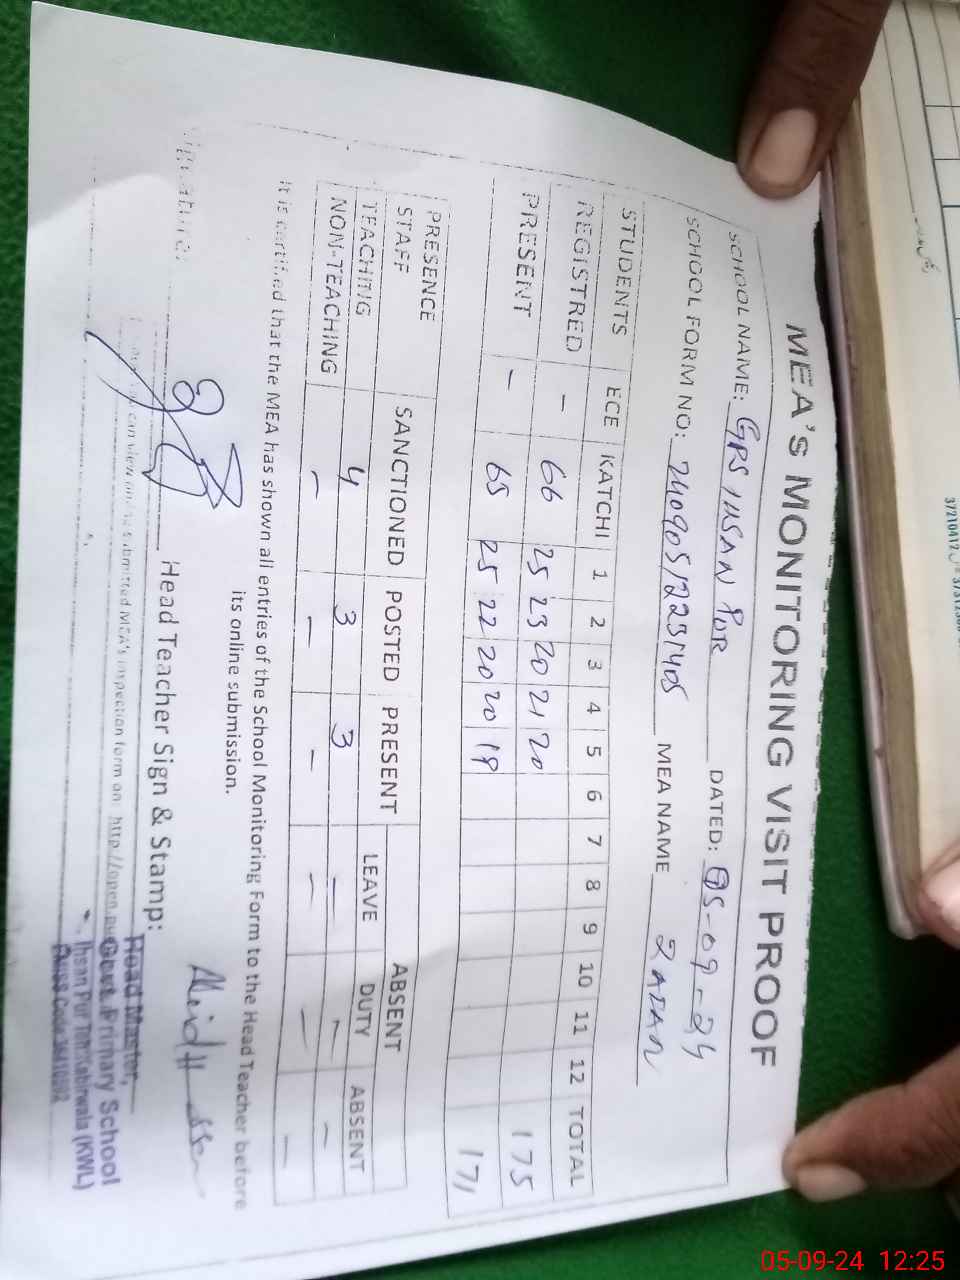 MEA'S MONITORING VISIT PROOF
SCHOOL NAME: GPS IHSAN PUR DATED: 05-09-24
SCHOOL FORM NO: 240905122351405 MEA NAME
STUDENTS ECE KATCHI 1 2 3 4 5 6 7 8 9 10 11 12 TOTAL
REGISTRED - 66 25 23 20 21 20 175
PRESENT - 65 25 22 20 20 19 171
PRESENCE STAFF SANCTIONED POSTED PRESENT ABSENT
LEAVE DUTY ABSENT
TEACHING 4 3 3 - - -
NON-TEACHING - - - - - -
It is certified that the MEA has shown all entries of the School Monitoring Form to the Head Teacher before
its online submission.
Signature: Head Teacher Sign & Stamp:
Head Master,
Govt. Primary School
Ihsan Pur Teh: Kabirwala (KWL)
can view online submitted MEA's inspection form on: http://open.
05-09-24 12:25